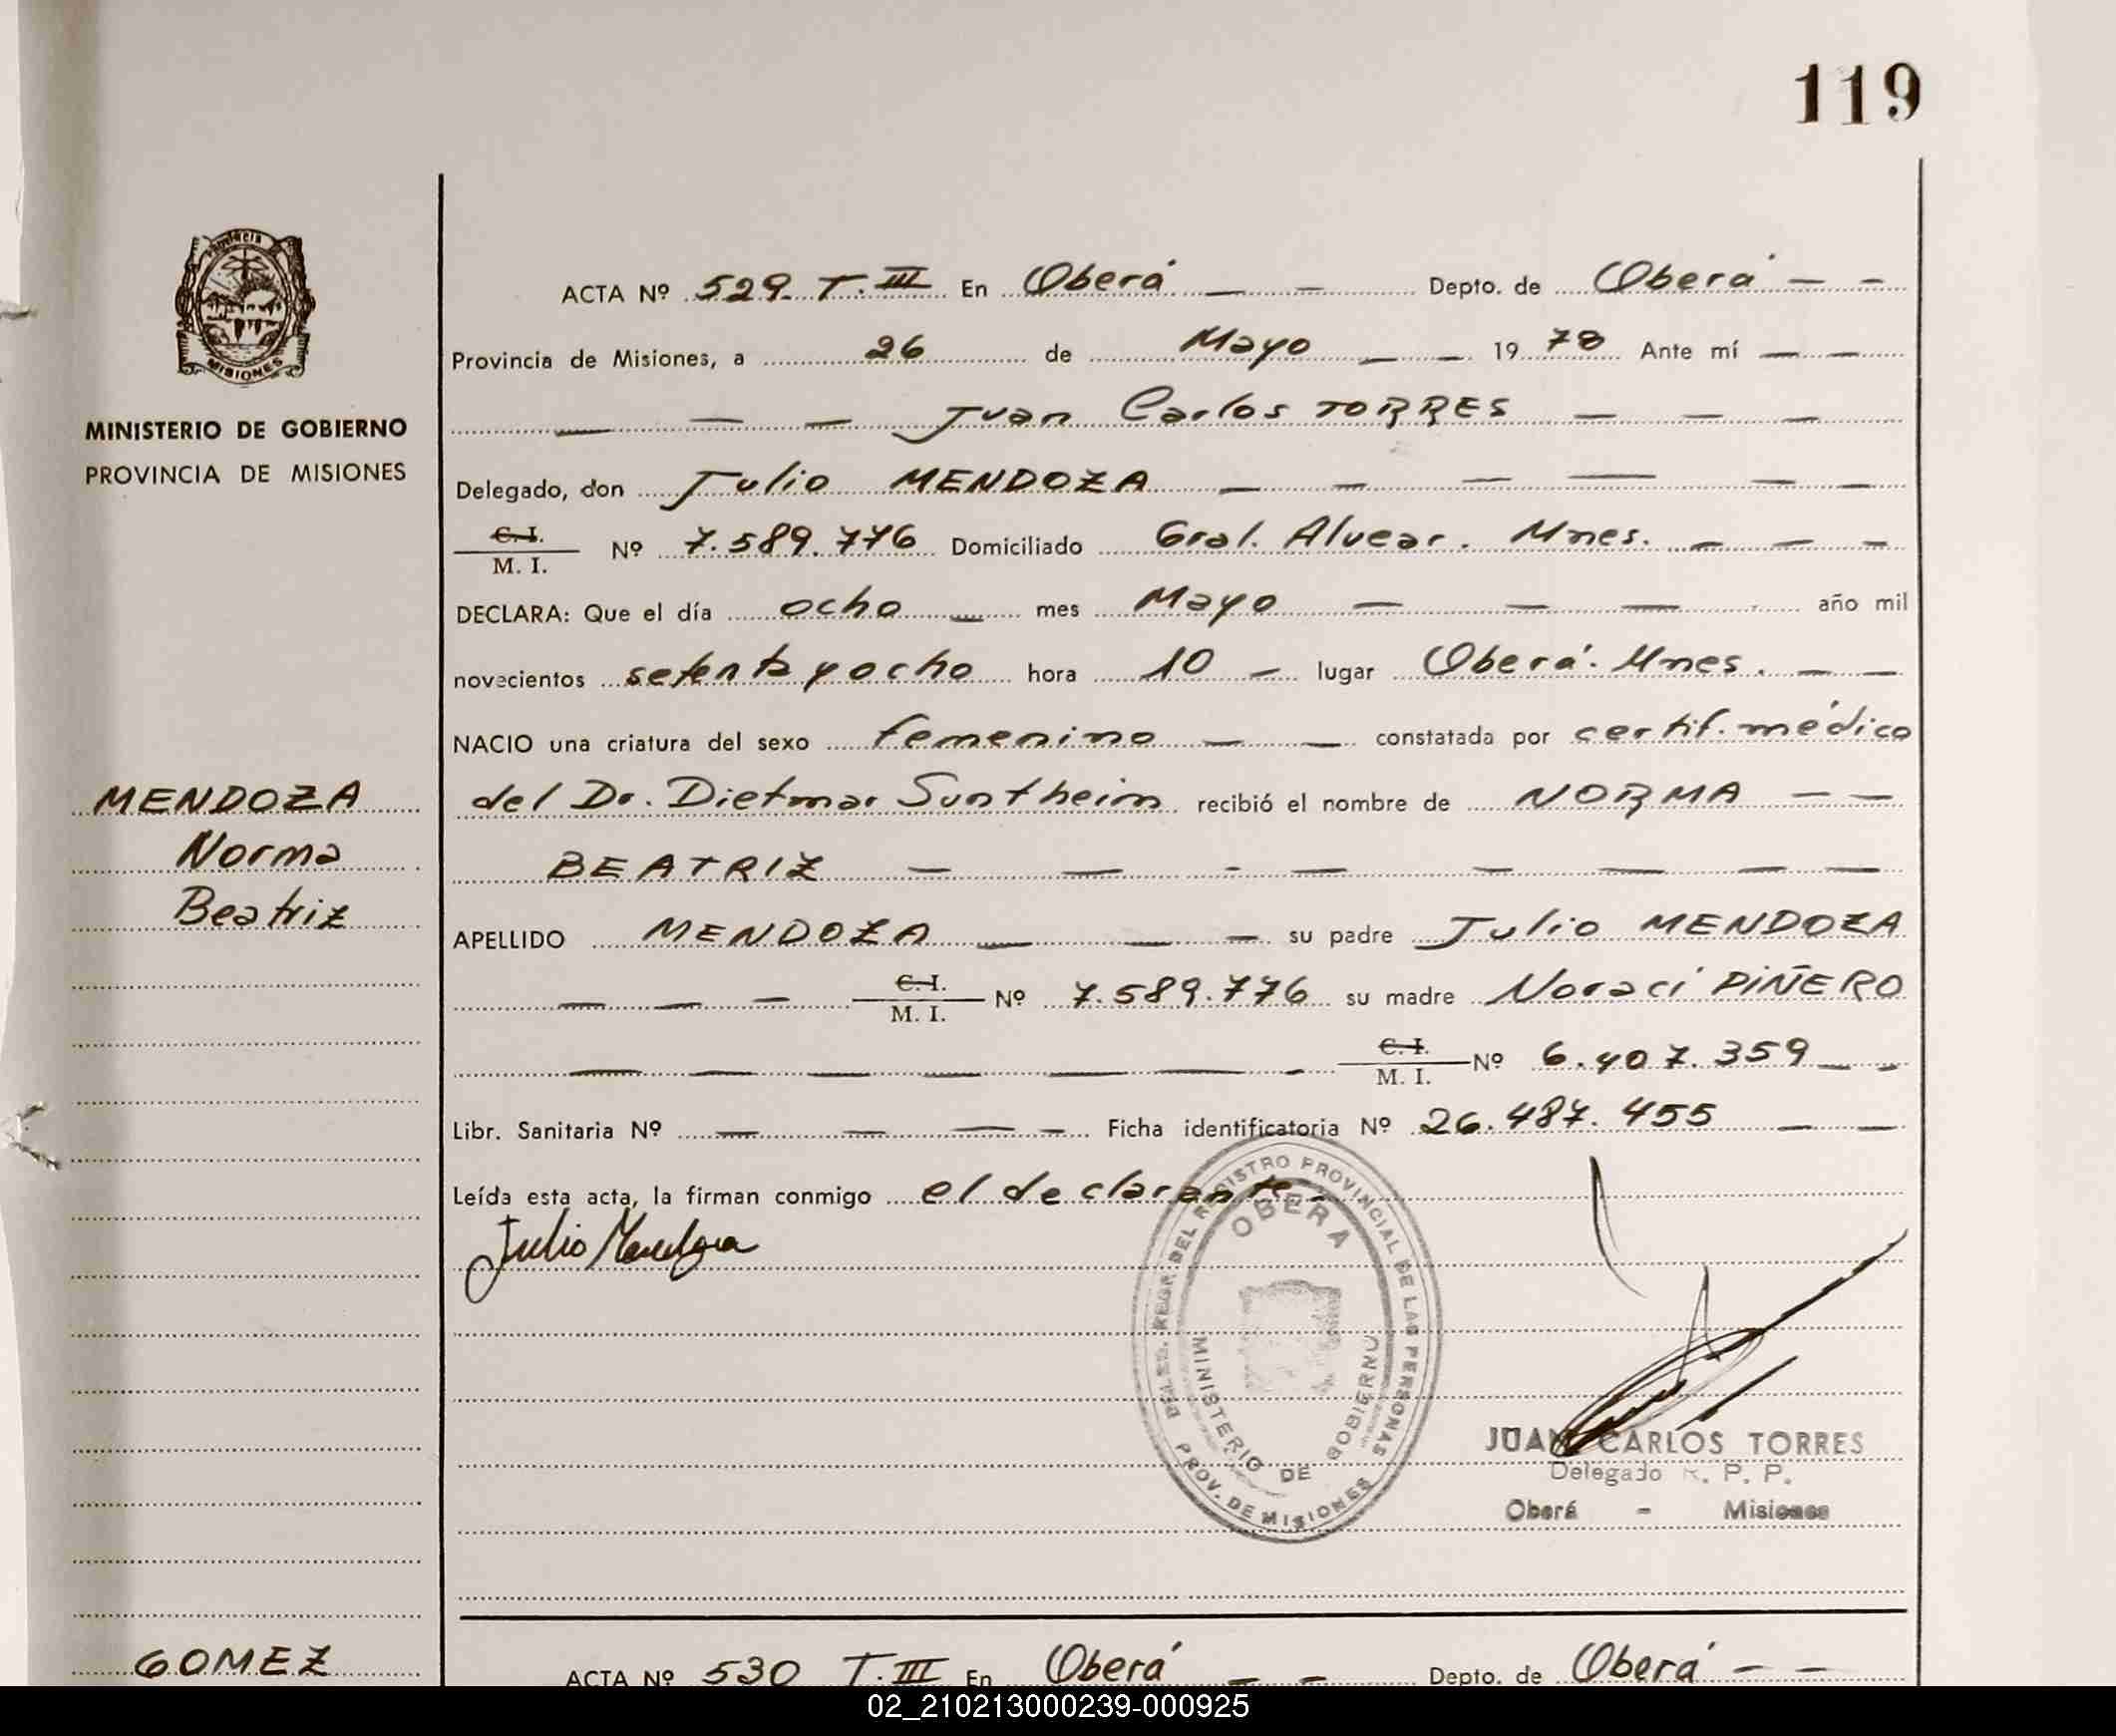 119
Provincia
MISIONES
MINISTERIO DE GOBIERNO
PROVINCIA DE MISIONES
MENDOZA
Norma
Beatriz
ACTA Nº 529 T. III En Oberá — — Depto. de Oberá — —
Provincia de Misiones, a 26 de Mayo — — 1978 Ante mí — —
— — — Juan Carlos TORRES — — —
Delegado, don Julio MENDOZA — — — — — —
C. I.
M. I. Nº 7.589.776 Domiciliado Gral. Alvear. Mnes. — — —
DECLARA: Que el día ocho — mes Mayo — — — año mil
novecientos setenta y ocho hora 10 — lugar Oberá. Mnes. — —
NACIO una criatura del sexo femenino — — constatada por certif. médico
del Dr. Dietmar Suntheim recibió el nombre de NORMA — —
BEATRIZ — — - — — — — —
APELLIDO MENDOZA — — — su padre Julio MENDOZA
— — — C. I.
M. I. Nº 7.589.776 su madre Noraci PIÑERO
— — — — — — - C. I.
M. I. Nº 6.407.359 — -
Libr. Sanitaria Nº — — — — Ficha identificatoria Nº 26.487.455 — —
Leída esta acta, la firman conmigo el declarante.-
Julio Mendoza
DELEG. REGR. DEL REGISTRO PROVINCIAL DE LAS PERSONAS
OBERA
MINISTERIO DE GOBIERNO
PROV. DE MISIONES
JUAN CARLOS TORRES
Delegado R. P. P.
Oberá - Misiones
GOMEZ
ACTA Nº 530 T. III En Oberá — — Depto. de Oberá — —
02_210213000239-000925